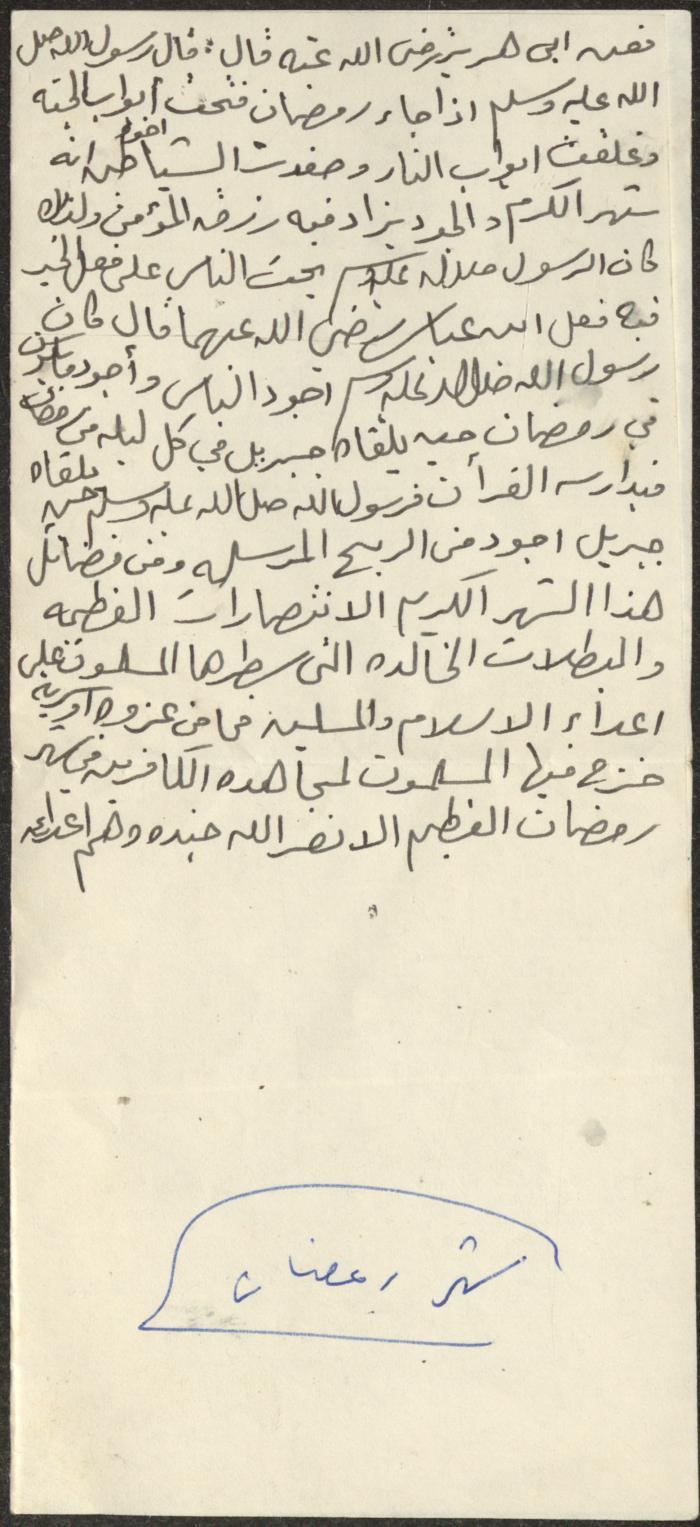 فعن ابى هريرة رضى الله عنه قال: قال رسول الله صلى
الله عليه وسلم اذا جاء رمضان فتحت أبواب الجنة
وغلقت ابواب النار وصفدت الشياطين اخوة انه
شهر الكرم والجود يزاد فيه رزق المؤمن ولذلك
كان الرسول صلى الله عليه وسلم يحث الناس على فعل الخير
فيه فعن ابن عباس رضى الله عنهما قال كان
رسول الله صلى الله عليه وسلم اجود الناس وأجود ما يكون
في رمضان حين يلقاه جبريل في كل ليلة من رمضان
فيدارسه القرأن فرسول الله صلى الله عليه وسلم حين يلقاه
جبريل اجود من الريح المرسلة ومن فضائل
هذا الشهر الكريم الانتصارات العظيمه
والبطلات الخالده التى سطرها المسلمون على
اعداء الاسلام والمسلمين فما من غزوه او سرية
خرج فيها المسلمون لمجاهده الكافرين في شهر
رمضان العظيم الا نصر الله جنده وهزم اعداءه
شهر رمضان